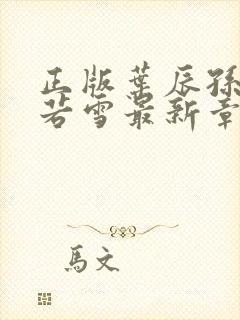 正版葉辰孫
若雪最新章
馬文